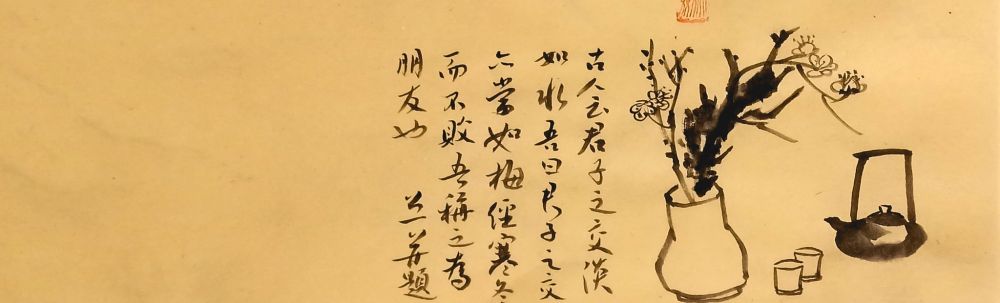 古人云君子之交淡
如水吾曰君子之交
亦當如梅經寒冬
而不敗吾稱之為
朋友也
題